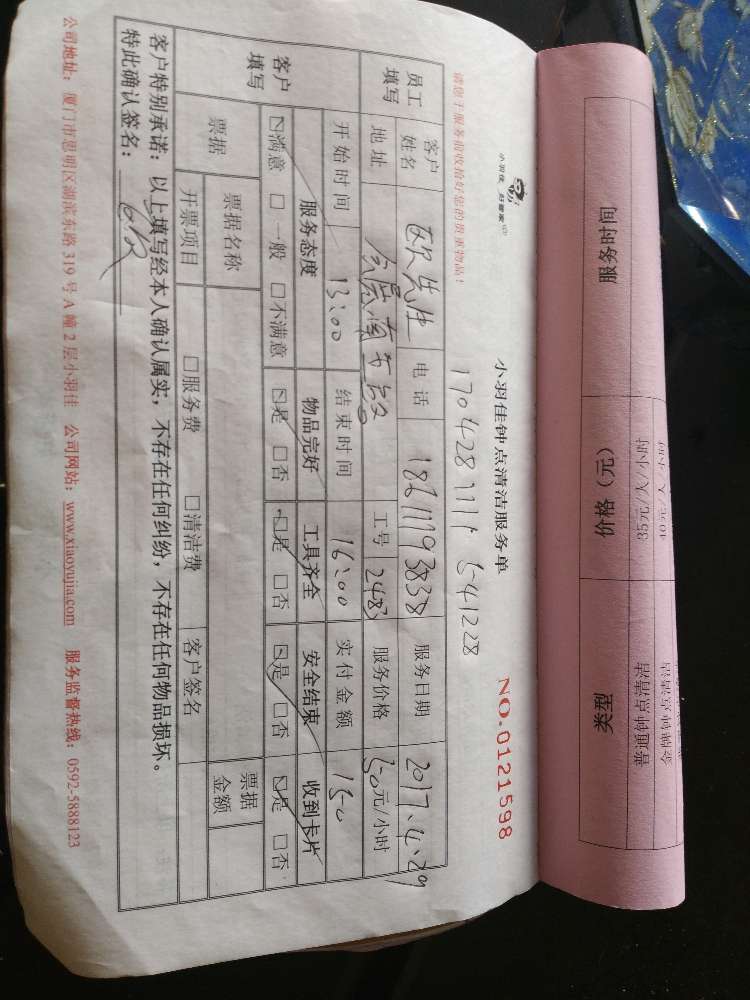 服务时间
价格（元）
类型
35元/人/小时
普通钟点清洁
小羽佳 好管家
小羽佳钟点清洁服务单
NO.0121598
请您于服务前收拾好您的贵重物品！
员工填写
客户姓名
欧先生
电话
18211193838
服务日期
2017.4.29
地址
工号
2483
服务价格
50元/小时
开始时间
13:00
结束时间
16:00
实付金额
150
客户填写
服务态度
物品完好
工具齐全
安全结束
收到卡片
☑满意 □一般 □不满意
☑是 □否
☑是 □否
☑是 □否
☑是 □否
票据
票据名称
票据金额
开票项目
□服务费 □清洁费
客户签名
客户特别承诺：以上填写经本人确认属实，不存在任何纠纷，不存在任何物品损坏。
特此确认签名：
公司地址：厦门市思明区湖滨东路319号A幢2层小羽佳 公司网站：www.xiaoyujia.com 服务监督热线：0592-5888123